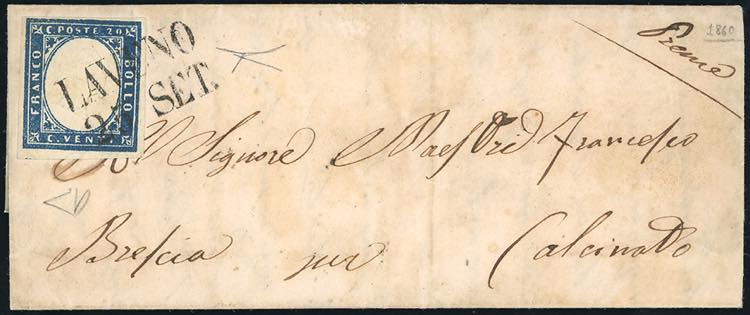 C. POSTE 20
FRANCO
BOLLO
C. VENTI
LAVENO
2 SET.
1860
Preme
Signore Maestri Francesco
Brescia per Calcinato